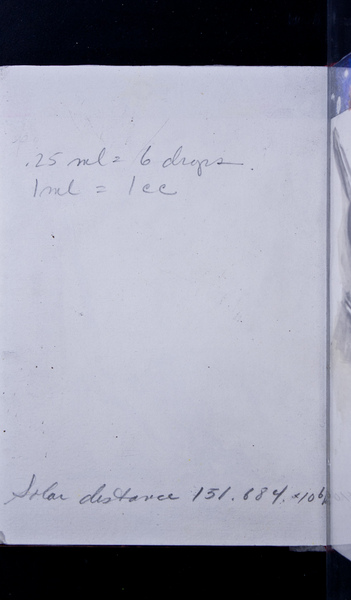 .25 ml = 6 drops.
1 ml = 1 cc
Solar distance 151.684 x 10⁶